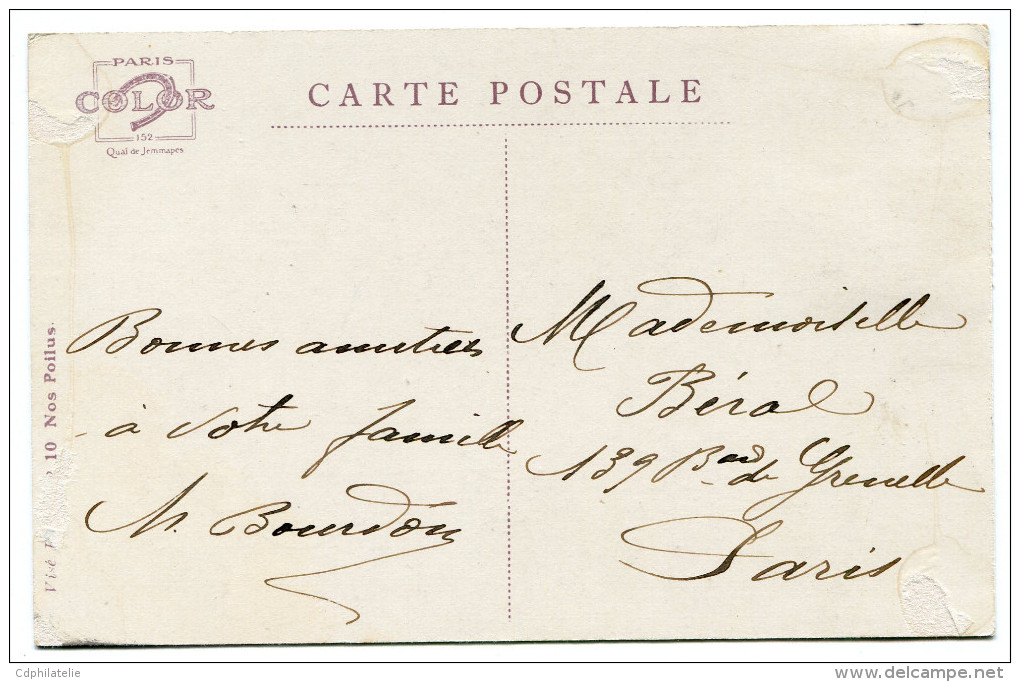 PARIS
COLOR
152
Quai de Jemmapes
CARTE POSTALE
Bonnes amitiés
à votre famille
M. Bourdon
Mademoiselle
Béral
139 Bard de Grenelle
Paris
Visé 10 Nos Poilus.
Cdphilatelie
www.delcampe.net